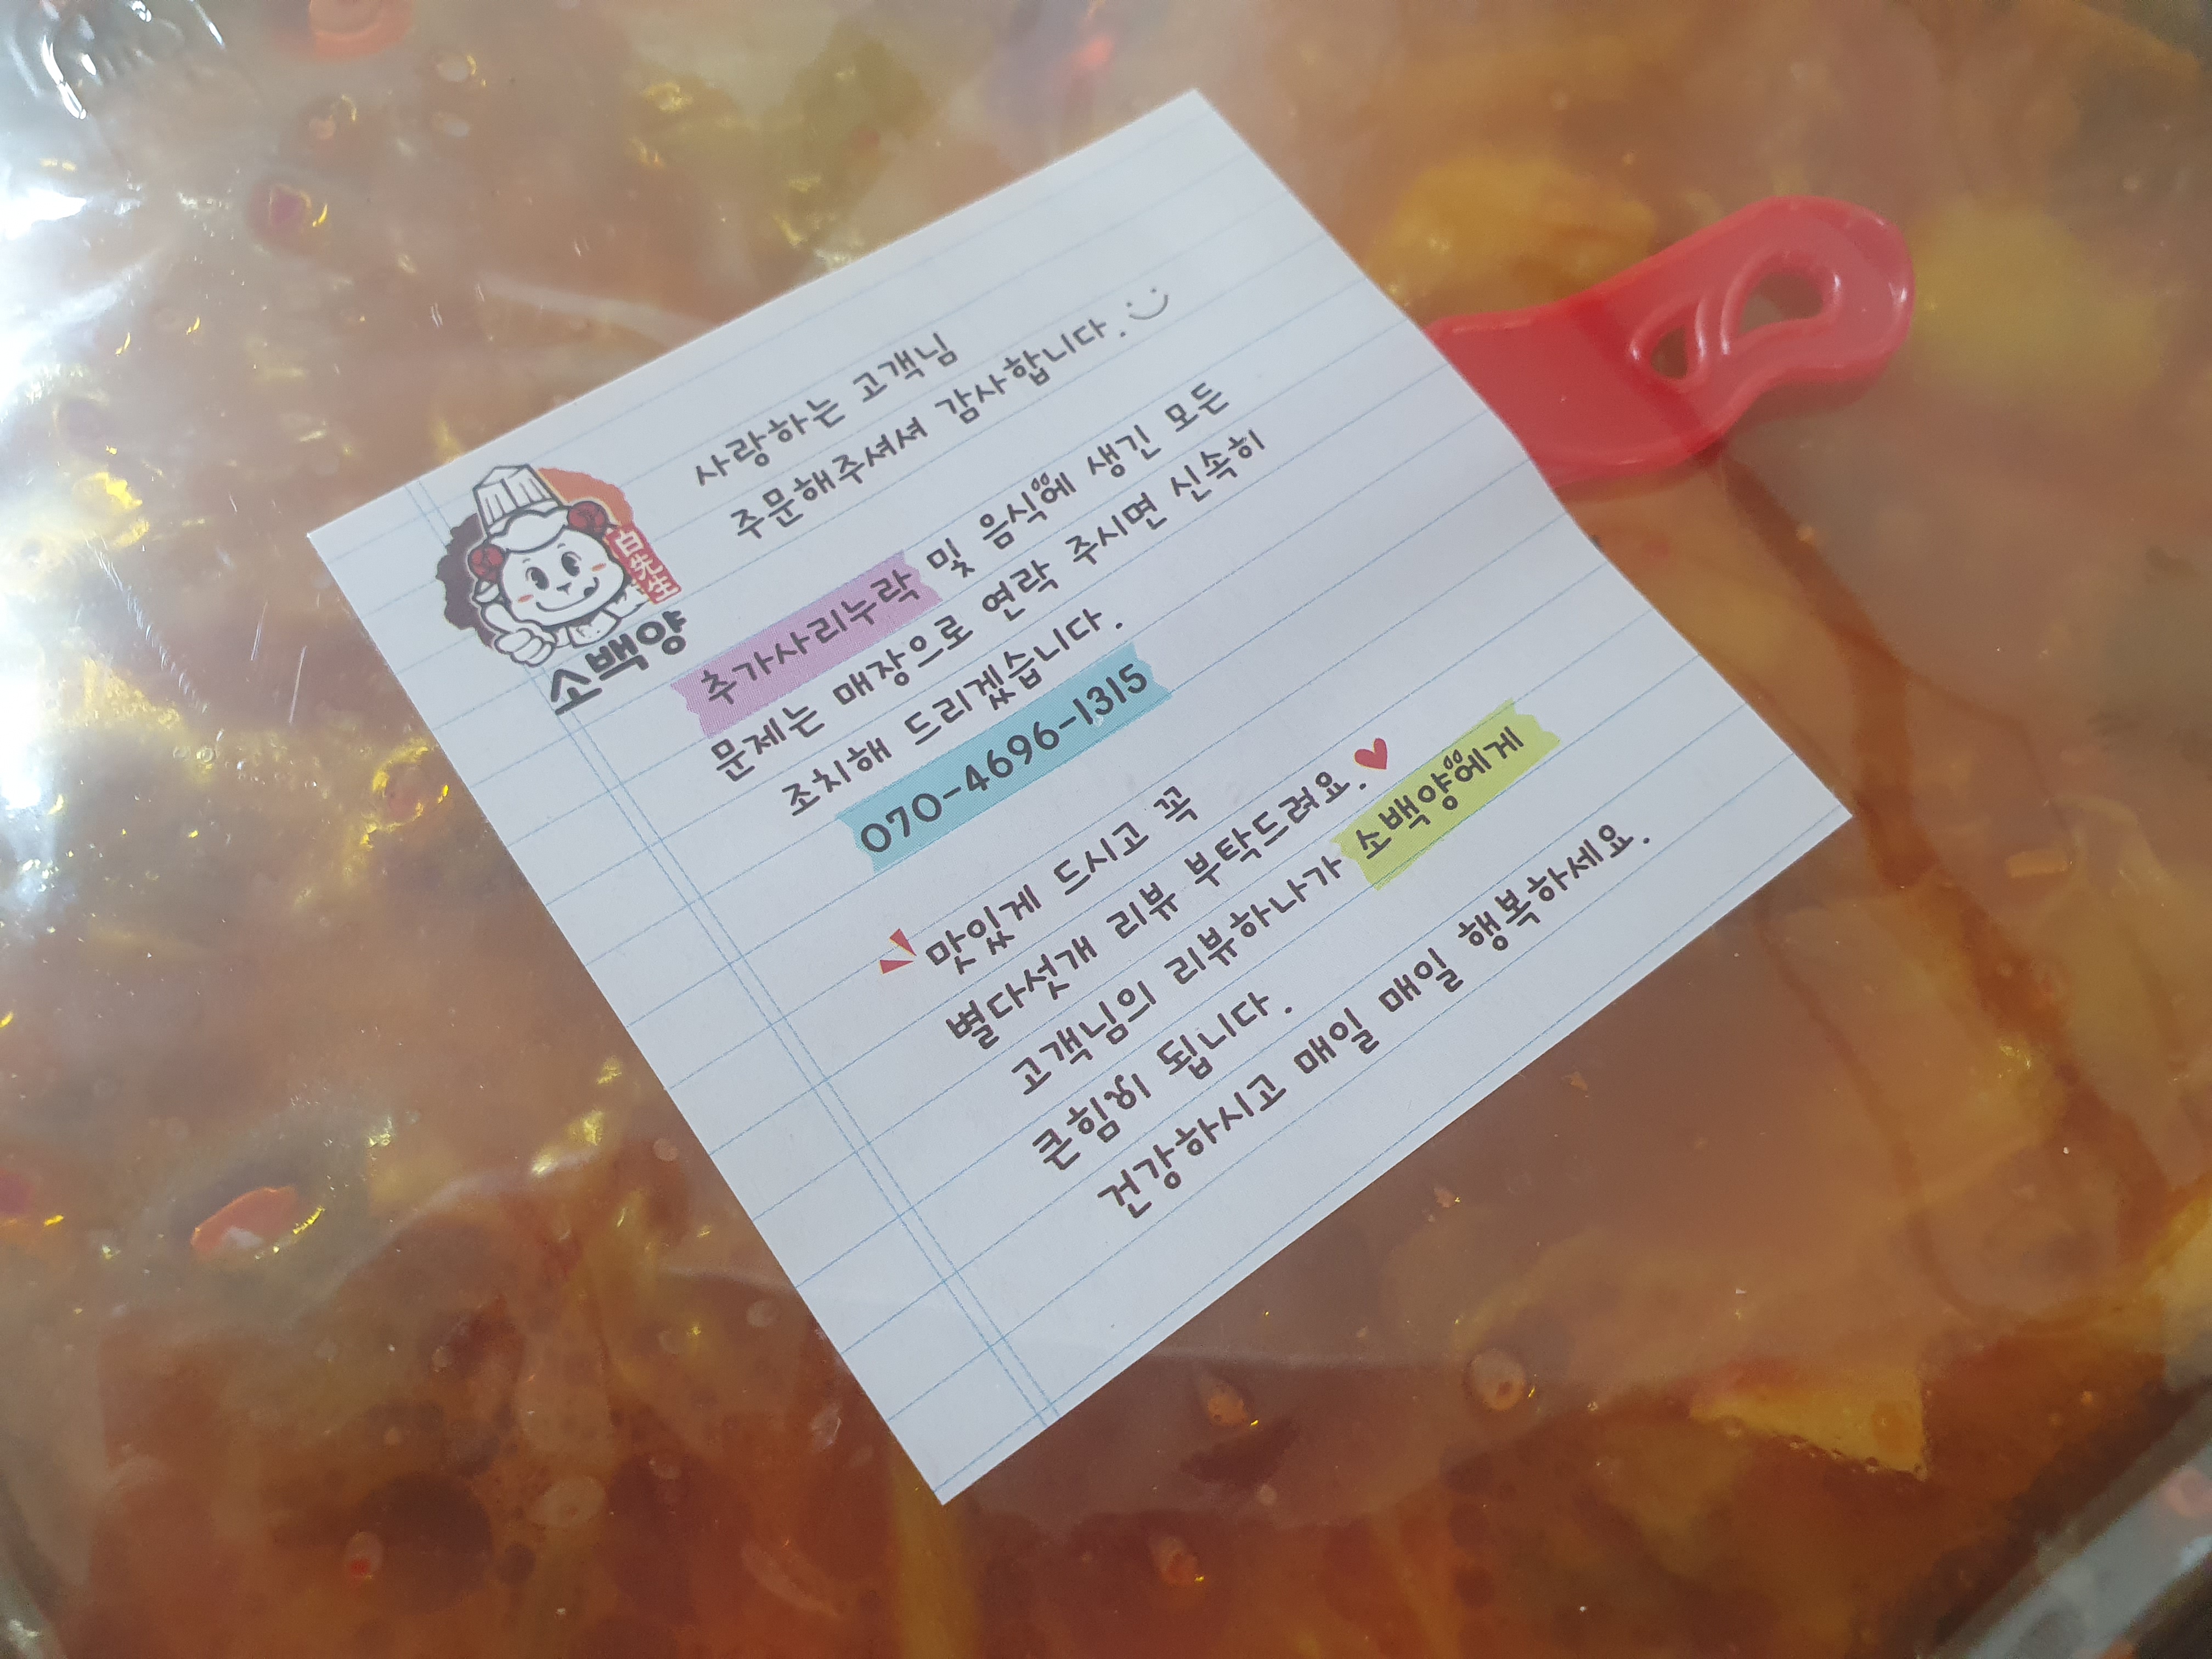 사랑하는 고객님
주문해주셔서 감사합니다.
白先生
소백양
추가사리누락 및 음식에 생긴 모든
문제는 매장으로 연락 주시면 신속히
조치해 드리겠습니다.
070-4696-1315
맛있게 드시고 꼭
별다섯개 리뷰 부탁드려요.
고객님의 리뷰하나가 소백양에게
큰힘이 됩니다.
건강하시고 매일 매일 행복하세요.